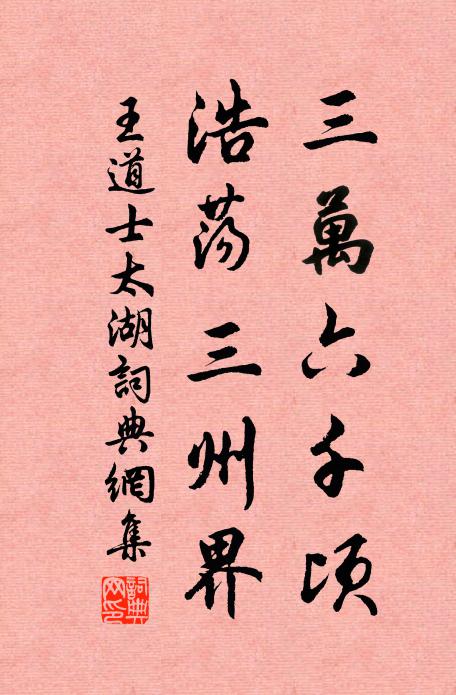 三萬六千頃
浩蕩三州界
王道士太湖詞典網集
詞典網印